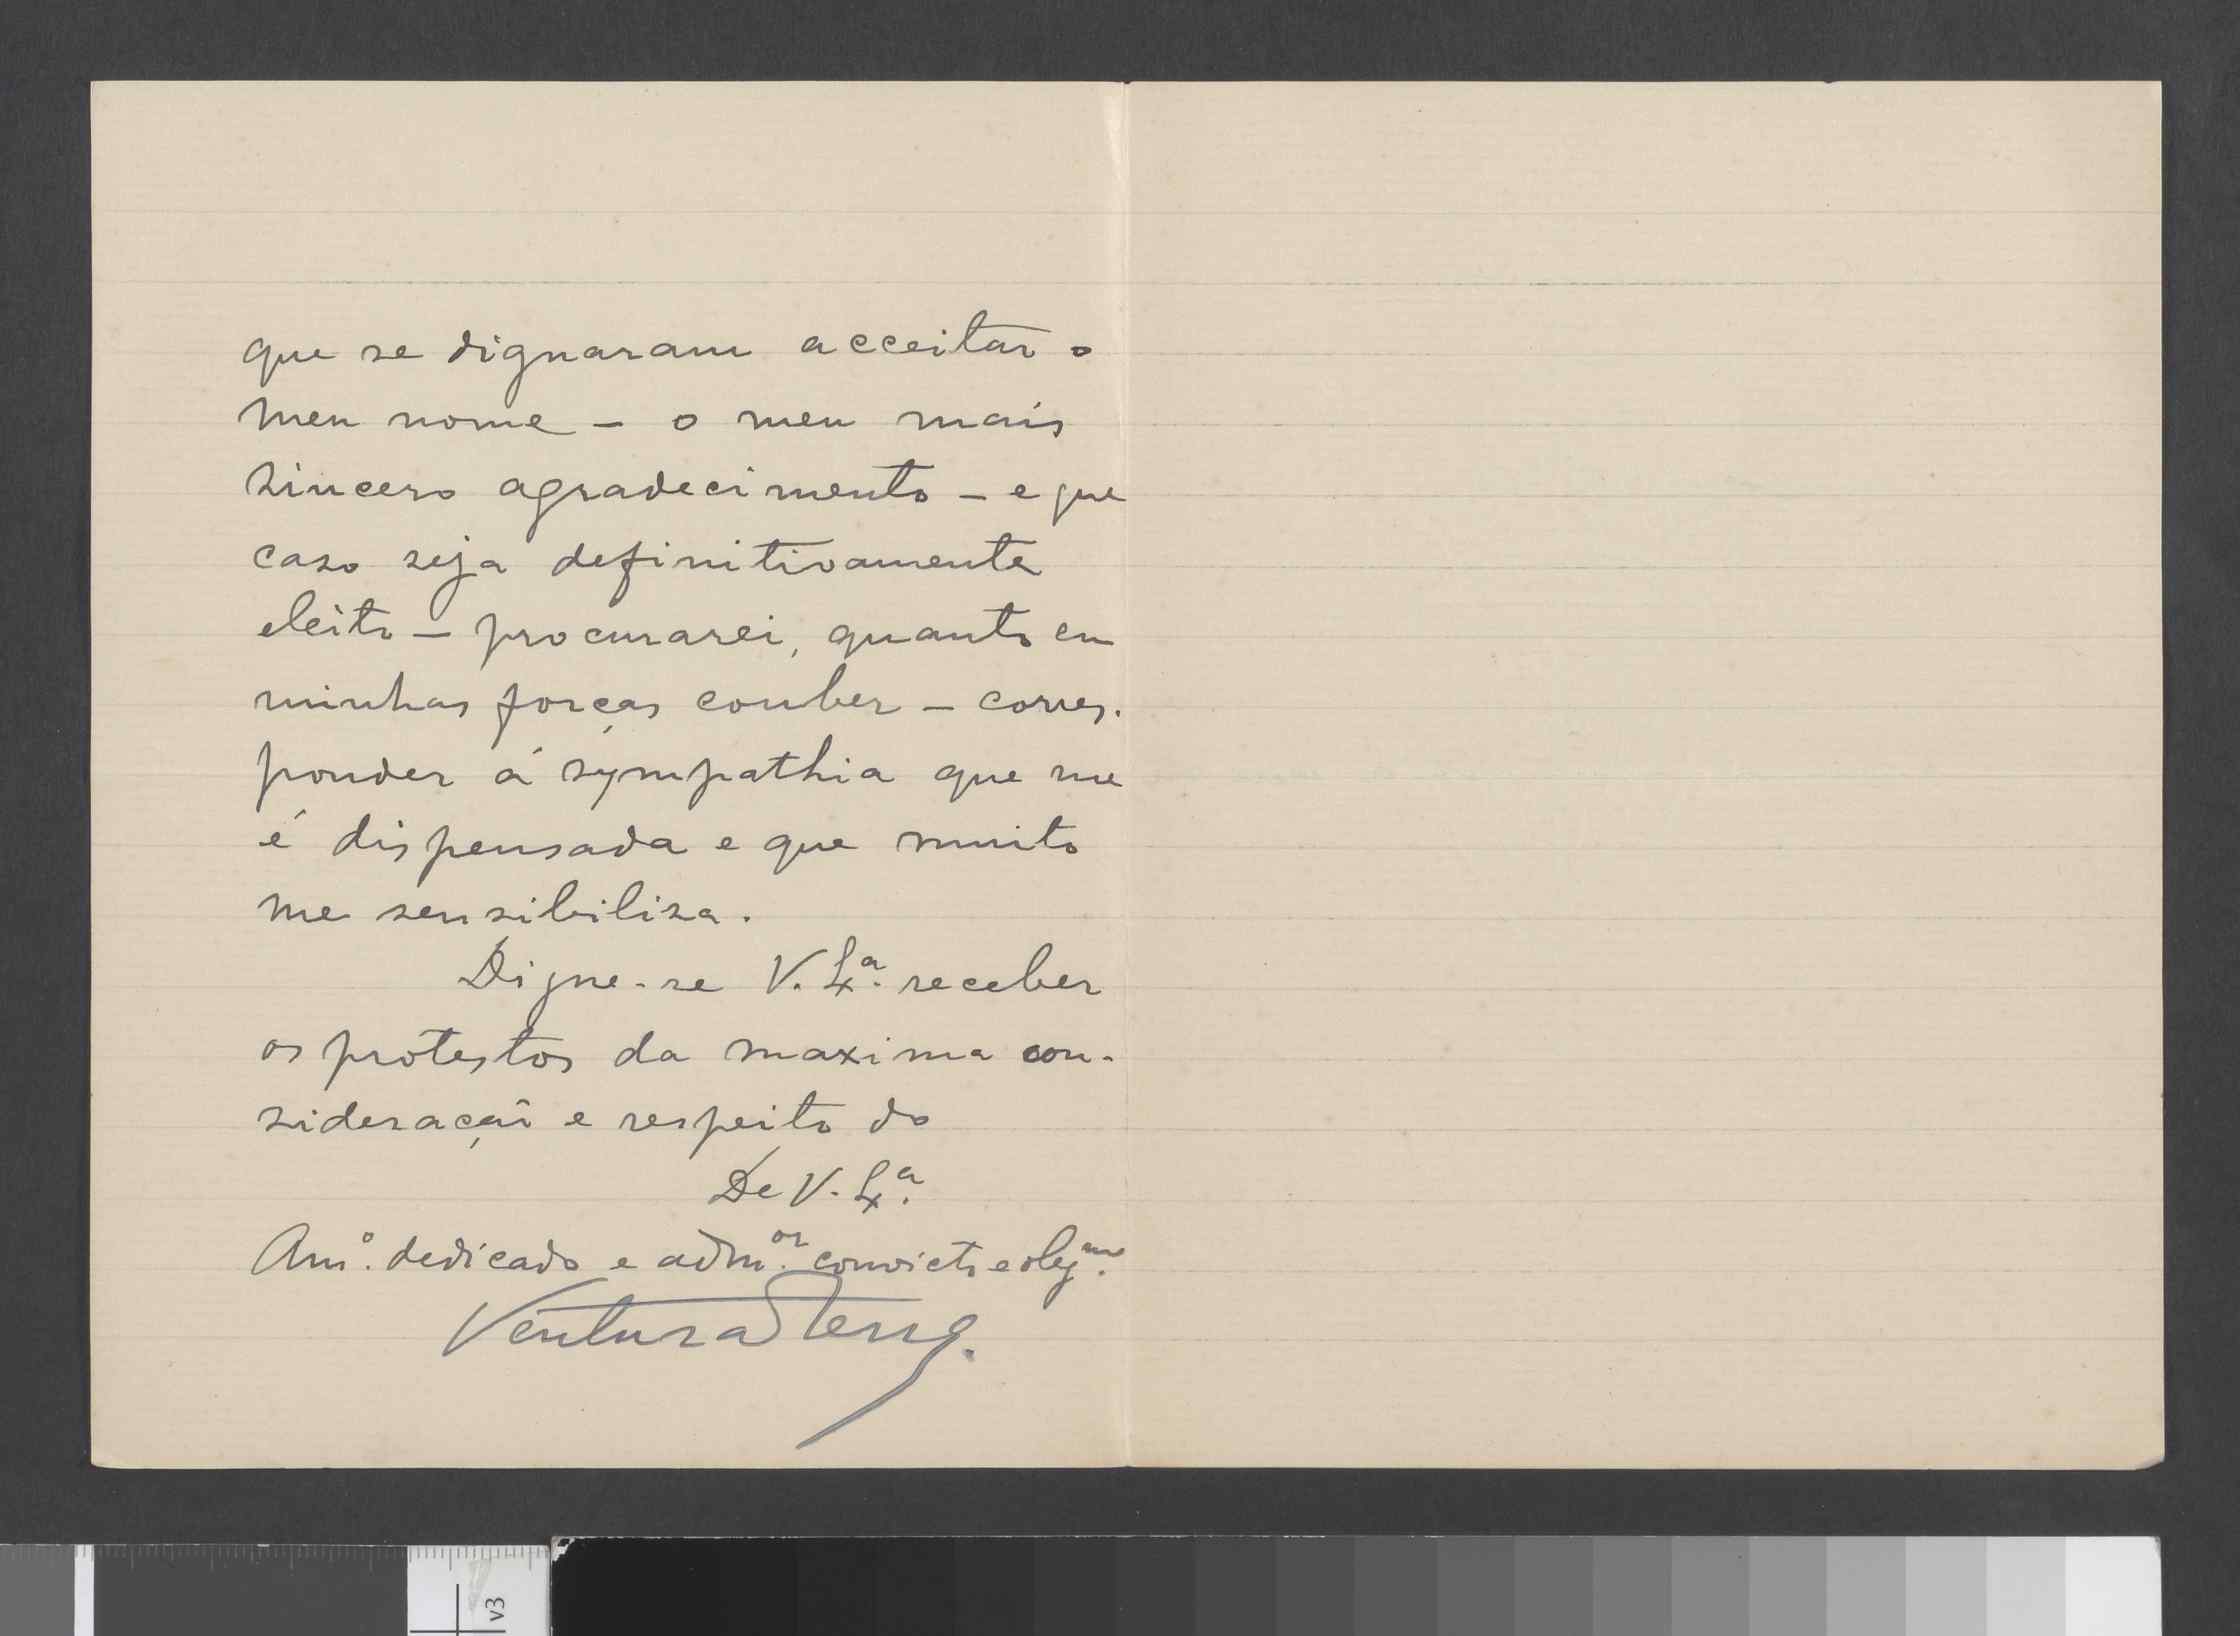 que se dignaram acceitar o
meu nome – o meu mais
sincero agradecimento – e que
caso seja definitivamente
eleito – procurarei, quanto em
minhas forças couber – corres-
ponder á sympathia que me
é dispensada e que muito
me sensibilisa.
Digne-se V. Exª. receber
os protestos da maxima con-
sideração e respeito do
De V. Exª.
Amº. dedicado e admºʳ. convicto e obgᵐᵒ.
Ventura Terra.
v3